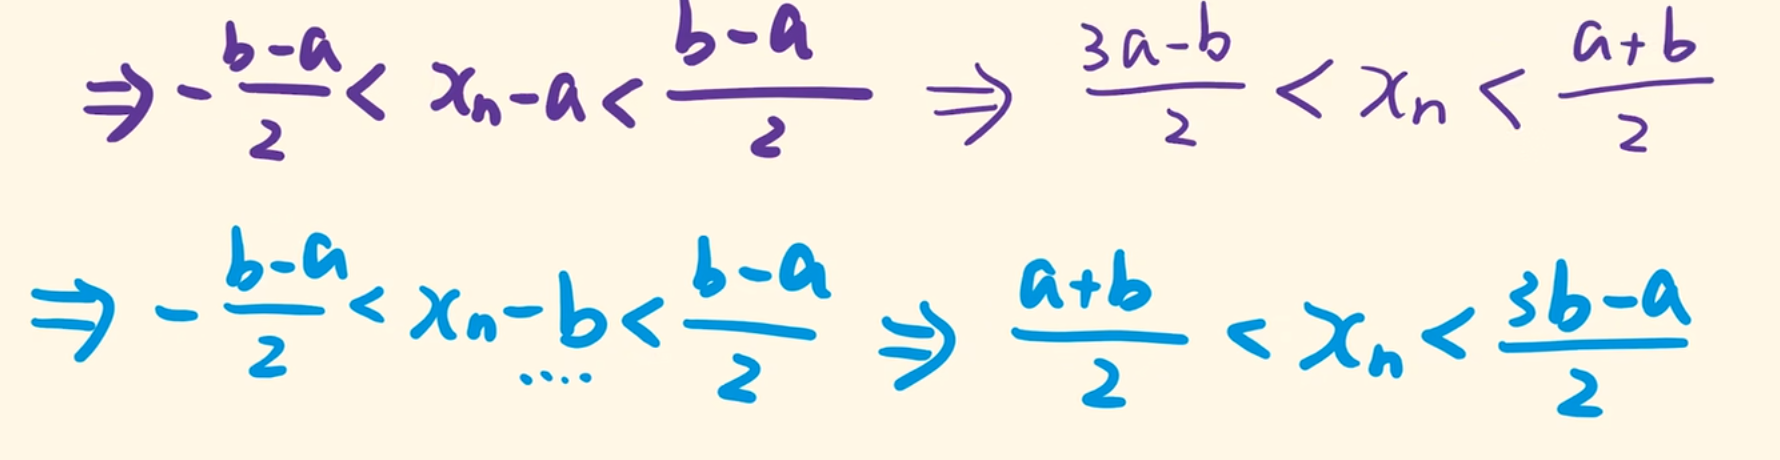 ⇒ -\frac{b-a}{2} < x_n-a < \frac{b-a}{2} ⇒ \frac{3a-b}{2} < x_n < \frac{a+b}{2}
⇒ -\frac{b-a}{2} < x_n-b < \frac{b-a}{2} ⇒ \frac{a+b}{2} < x_n < \frac{3b-a}{2}